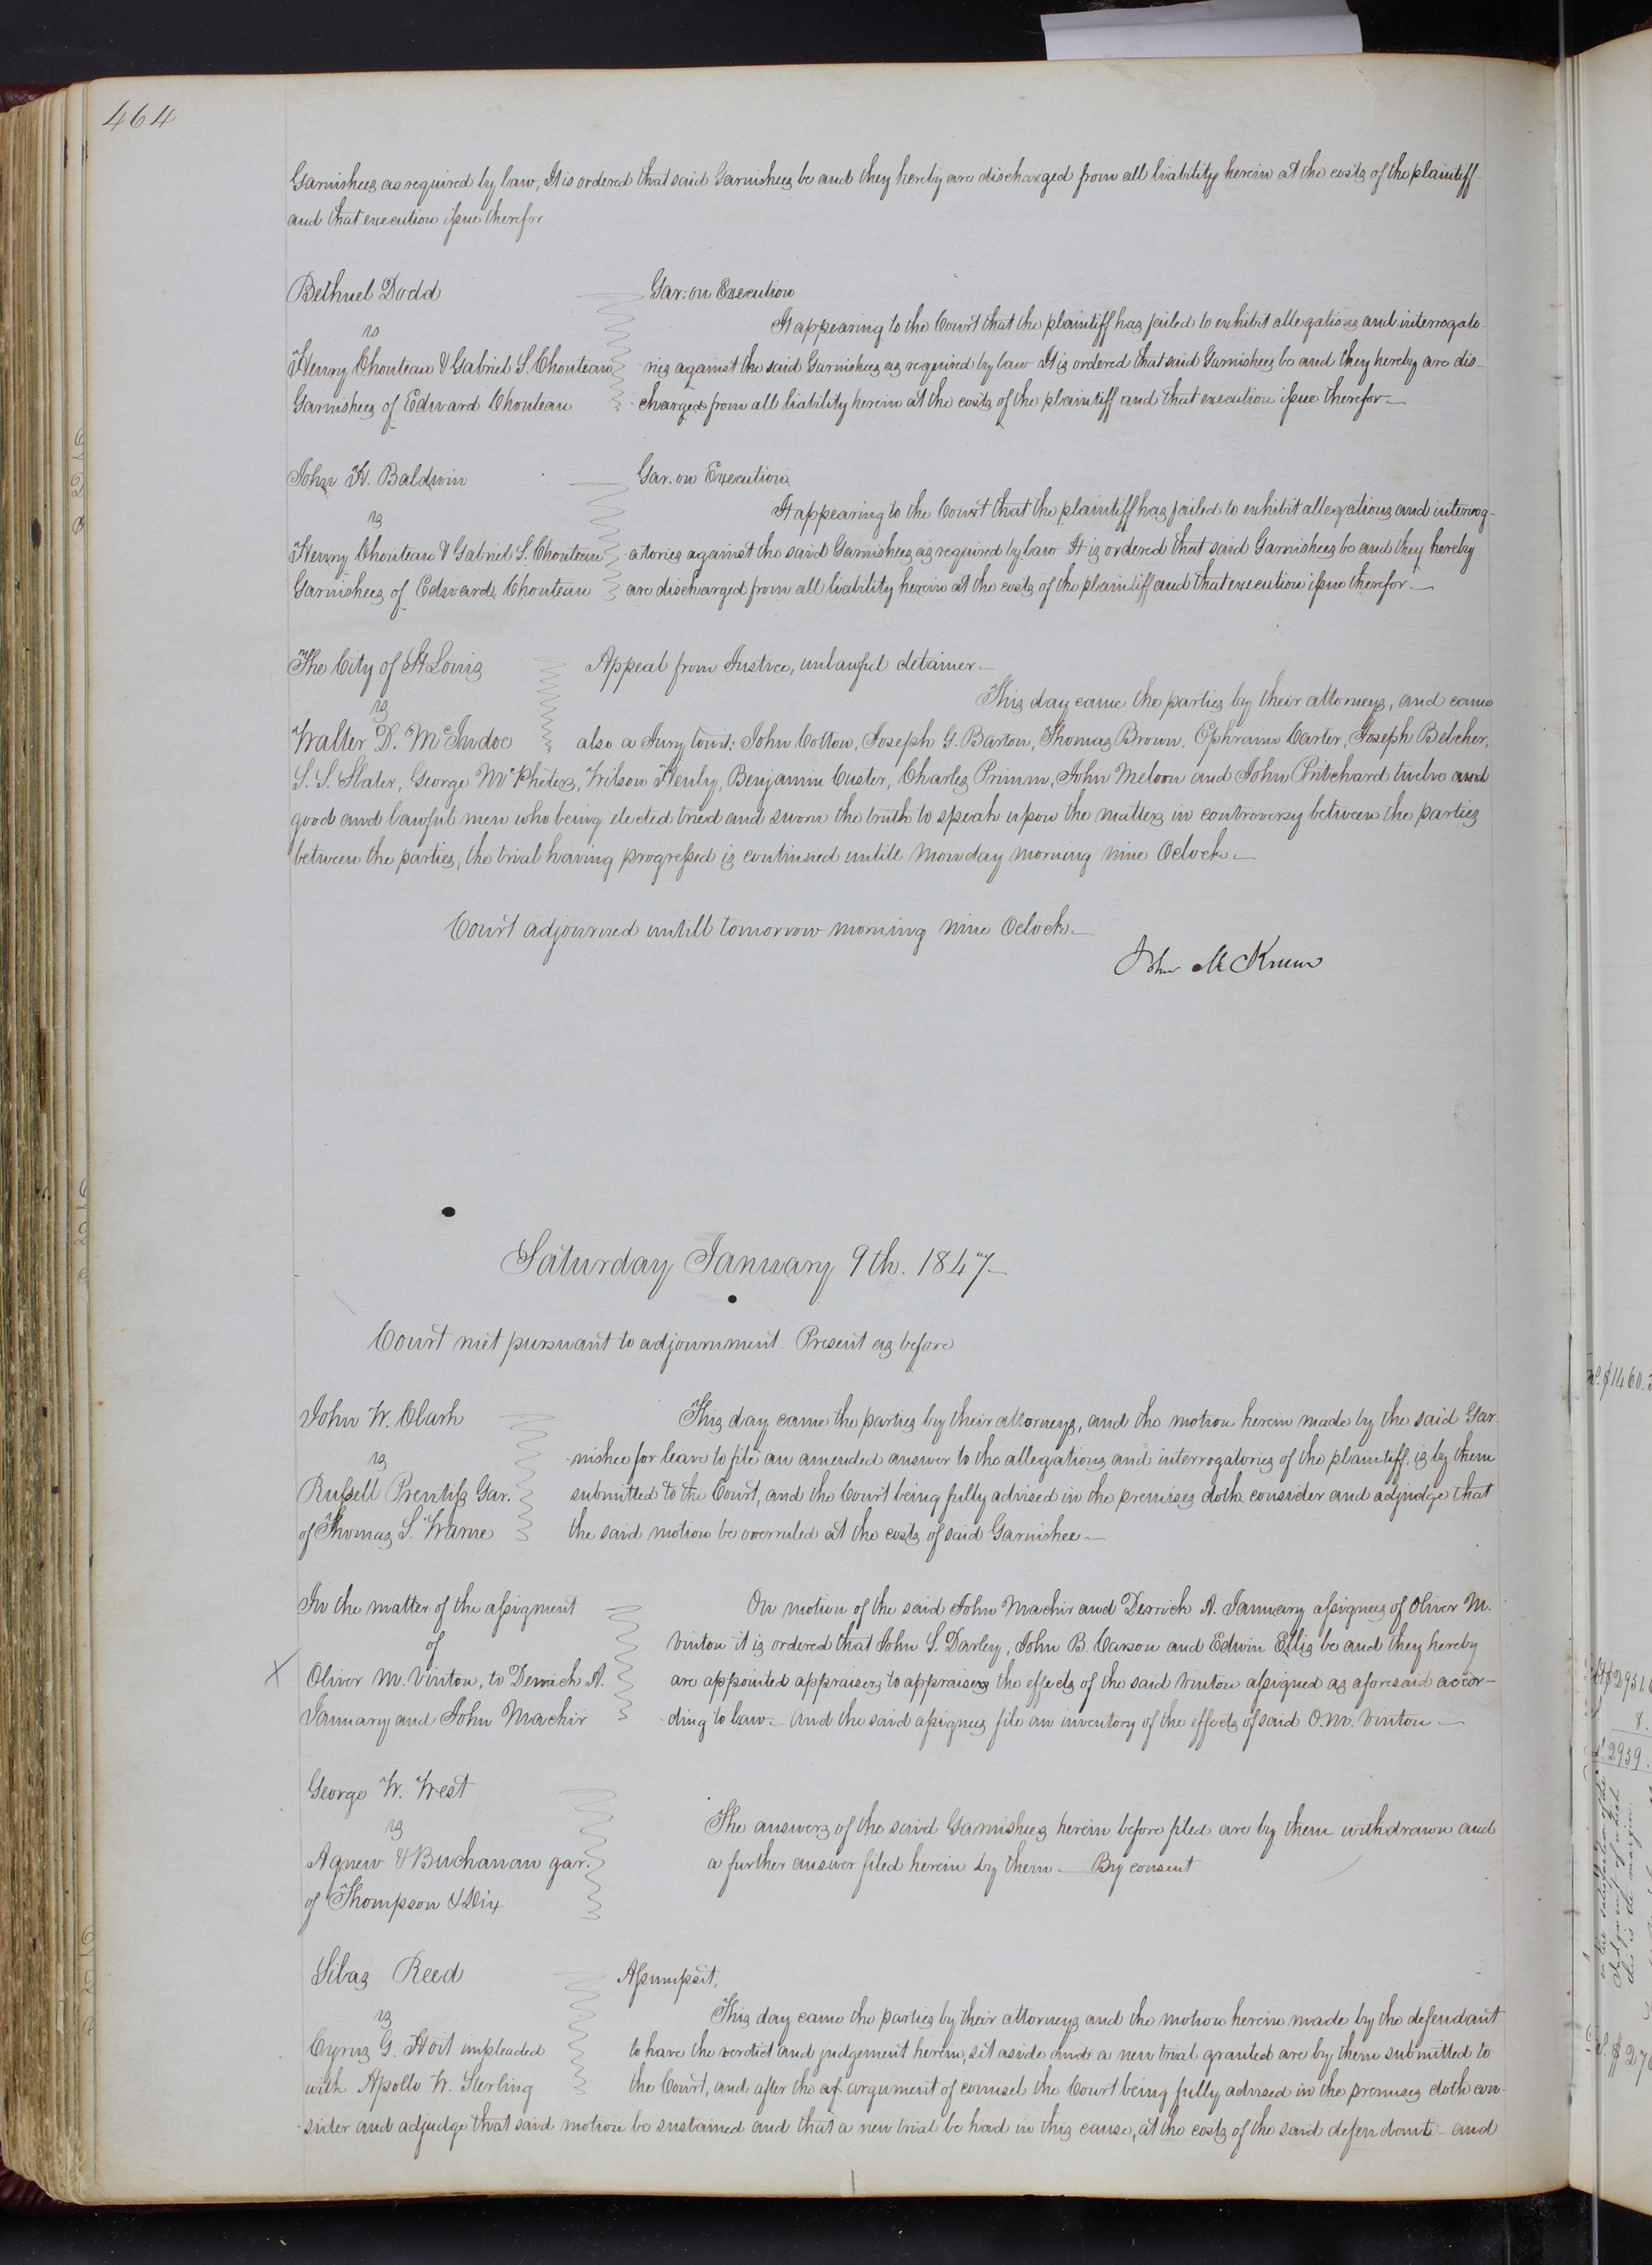 464
Garnishees as required by law, It is ordered that said Garnishees be and they hereby are discharged from all liability herein at the costs of the plaintiff
and that execution issue therefor
Bethuel Dodd
vs
Henry Chouteau & Gabriel S. Chouteau
Garnishees of Edward Chouteau
Gar: on Execution
It appearing to the Court that the plaintiff has failed to exhibit allegations and interrogato-
ries against the said Garnishees as required by law It is ordered that said Garnishees be and they hereby are dis-
charged from all liability herein at the costs of the plaintiff and that execution issue therefor
John H. Baldwin
vs
Henry Chouteau & Gabriel S. Chouteau
Garnishees of Edward Chouteau
Gar. on Execution
It appearing to the Court that the plaintiff has failed to exhibit allegations and interrog-
atories against the said Garnishees as required by law It is ordered that said Garnishees be and they hereby
are discharged from all liability herein at the costs of the plaintiff and that execution issue therefor
The City of St Louis
vs
Walter D. McIndoe
Appeal from Justice, unlawful detainer
This day came the parties by their attorneys, and came
also a Jury towit: John Cotton, Joseph G. Barton, Thomas Brown, Ephraim Carter, Joseph Belcher,
S. S. Slater, George McPheters, Wilson Henly, Benjamin Custer, Charles Primm, John Meloon and John Pritchard twelve and
good and lawful men who being elected tried and sworn the truth to speak upon the matters in controversy between the parties
between the parties, the trial having progressed is continued untill monday morning nine Oclock
Court adjourned untill tomorrow morning nine Oclock
John M Krum
Saturday January 9th. 1847
Court met pursuant to adjournment Present as before
John W. Clark
vs
Russell Prentiss Gar.
of Thomas S. Warne
This day came the parties by their attorneys, and the motion herein made by the said Gar-
nishee for leave to file an amended answer to the allegations and interrogatories of the plaintiff, is by them
submitted to the Court, and the Court being fully advised in the premises doth consider and adjudge that
the said motion be overruled at the costs of said Garnishee
In the matter of the assigment
of
X
Oliver M. Vinton, to Derrick A.
January and John Machir
On motion of the said John Machir and Derrick A. January assignees of Oliver M.
Vinton it is ordered that John S. Darley, John B. Carson and Edwin Ellis be and they hereby
are appointed appraisers to appraisers the effects of the said Vinton assigned as aforesaid accor-
ding to law. And the said assignees file an inventory of the effects of said O. M. Vinton
George W. West
vs
Agnew & Buchanan gar.
of Thompson & Dix
The answers of the said Garnishees herein before filed are by them withdrawn and
a further answer filed herein by them By consent
Silas Reed
vs
Cyrus G. Hoit impleaded
with Apollo W. Sterling
Assumpsit,
This day came the parties by their attorneys and the motion herein made by the defendant
to have the verdict and judgement herein, set aside and a new trial granted are by them submitted to
the Court, and after the af argument of counsel the Court being fully advised in the premises doth con-
sider and adjudge that said motion be sustained and that a new trial be had in this cause, at the costs of the said defendant and